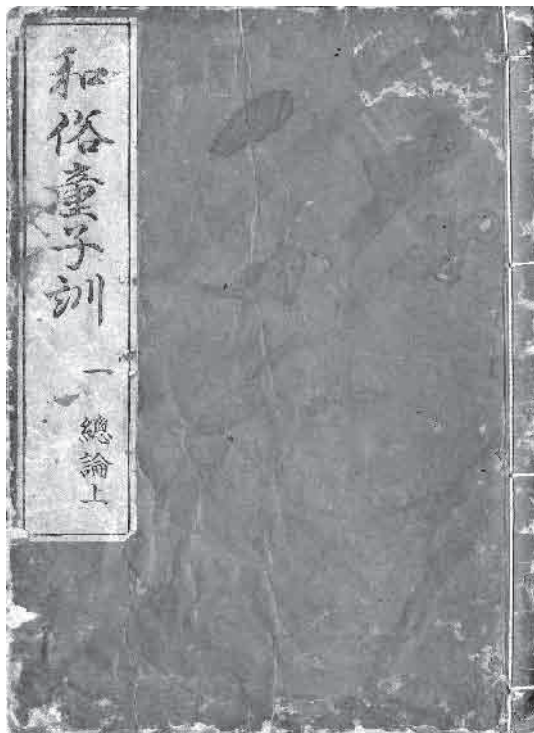 和俗童子訓
一 總論上